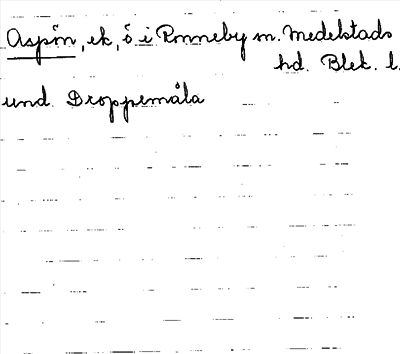 Aspön, ek, ö i Ronneby m. Medelstads
hd. Blek. l.
und. Droppemåla